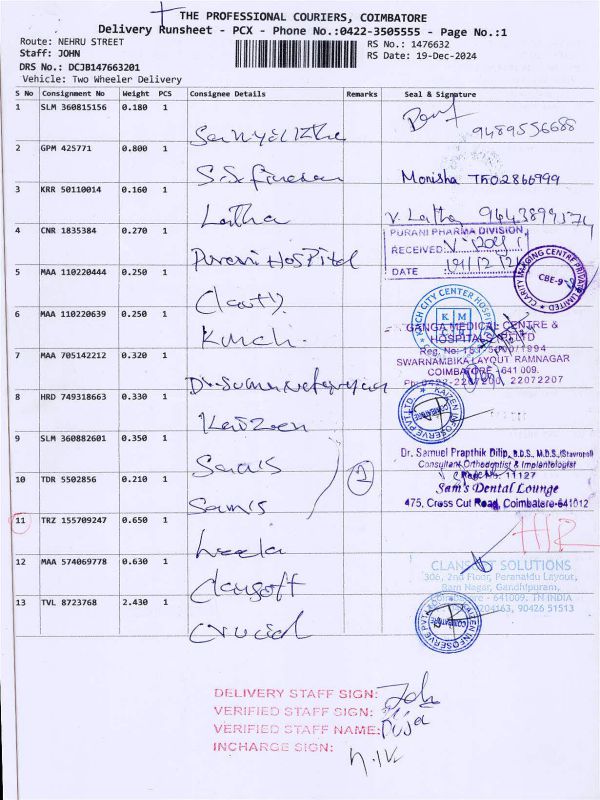 THE PROFESSIONAL COURIERS, COIMBATORE
Delivery Runsheet - PCX - Phone No.:0422-3505555 - Page No.:1
Route: NEHRU STREET
RS No.: 1476632
Staff: JOHN
RS Date: 19-Dec-2024
DRS No.: DCJB147663201
Vehicle: Two Wheeler Delivery
S No Consignment No Weight PCS Consignee Details Remarks Seal & Signature
1 SLM 360815156 0.180 1
9489556688
2 GPM 425771 0.800 1
Monisha 7502866999
3 KRR 50110014 0.160 1
Latha V. Latha
4 CNR 1835384 0.270 1
Purani Hospital
PURANI PHARMA DIVISION
RECEIVED:
DATE
5 MAA 110220444 0.250 1
CLARITY IMAGING CENTRE PRIVATE LIMITED
CBE-9
6 MAA 110220639 0.250 1
KMCH CITY CENTER HOSPITAL
GANGA MEDICAL CENTRE &
HOSPITALS P LTD
SWARNAMBIKA LAYOUT, RAMNAGAR
COIMBATORE - 641 009.
Ph: 0422-2207200, 22072207
7 MAA 705142212 0.320 1
8 HRD 749318663 0.330 1
Kaizen
KAIZEN INFOSERVE PVT LTD
COIMBATORE
9 SLM 360882601 0.350 1
Dr. Samuel Prapthik Dilip, B.D.S., M.D.S.,(Stavropol)
Consultant Orthodontist & Implantologist
11127
Sam's Dental Lounge
475, Cross Cut Road, Coimbatore-641012
10 TDR 5502856 0.210 1
Sam's
2
11 TRZ 155709247 0.650 1
Leela
12 MAA 574069778 0.630 1
Clansoft
SOLUTIONS
306, 2nd Floor, Peranaidu Layout,
Ram Nagar, Gandhipuram,
Coimbatore - 641009. TN INDIA
90426 51513
13 TVL 8723768 2.430 1
Crucial
KAIZEN INFOSERVE PVT LTD
DELIVERY STAFF SIGN: John
VERIFIED STAFF SIGN:
VERIFIED STAFF NAME:
INCHARGE SIGN: